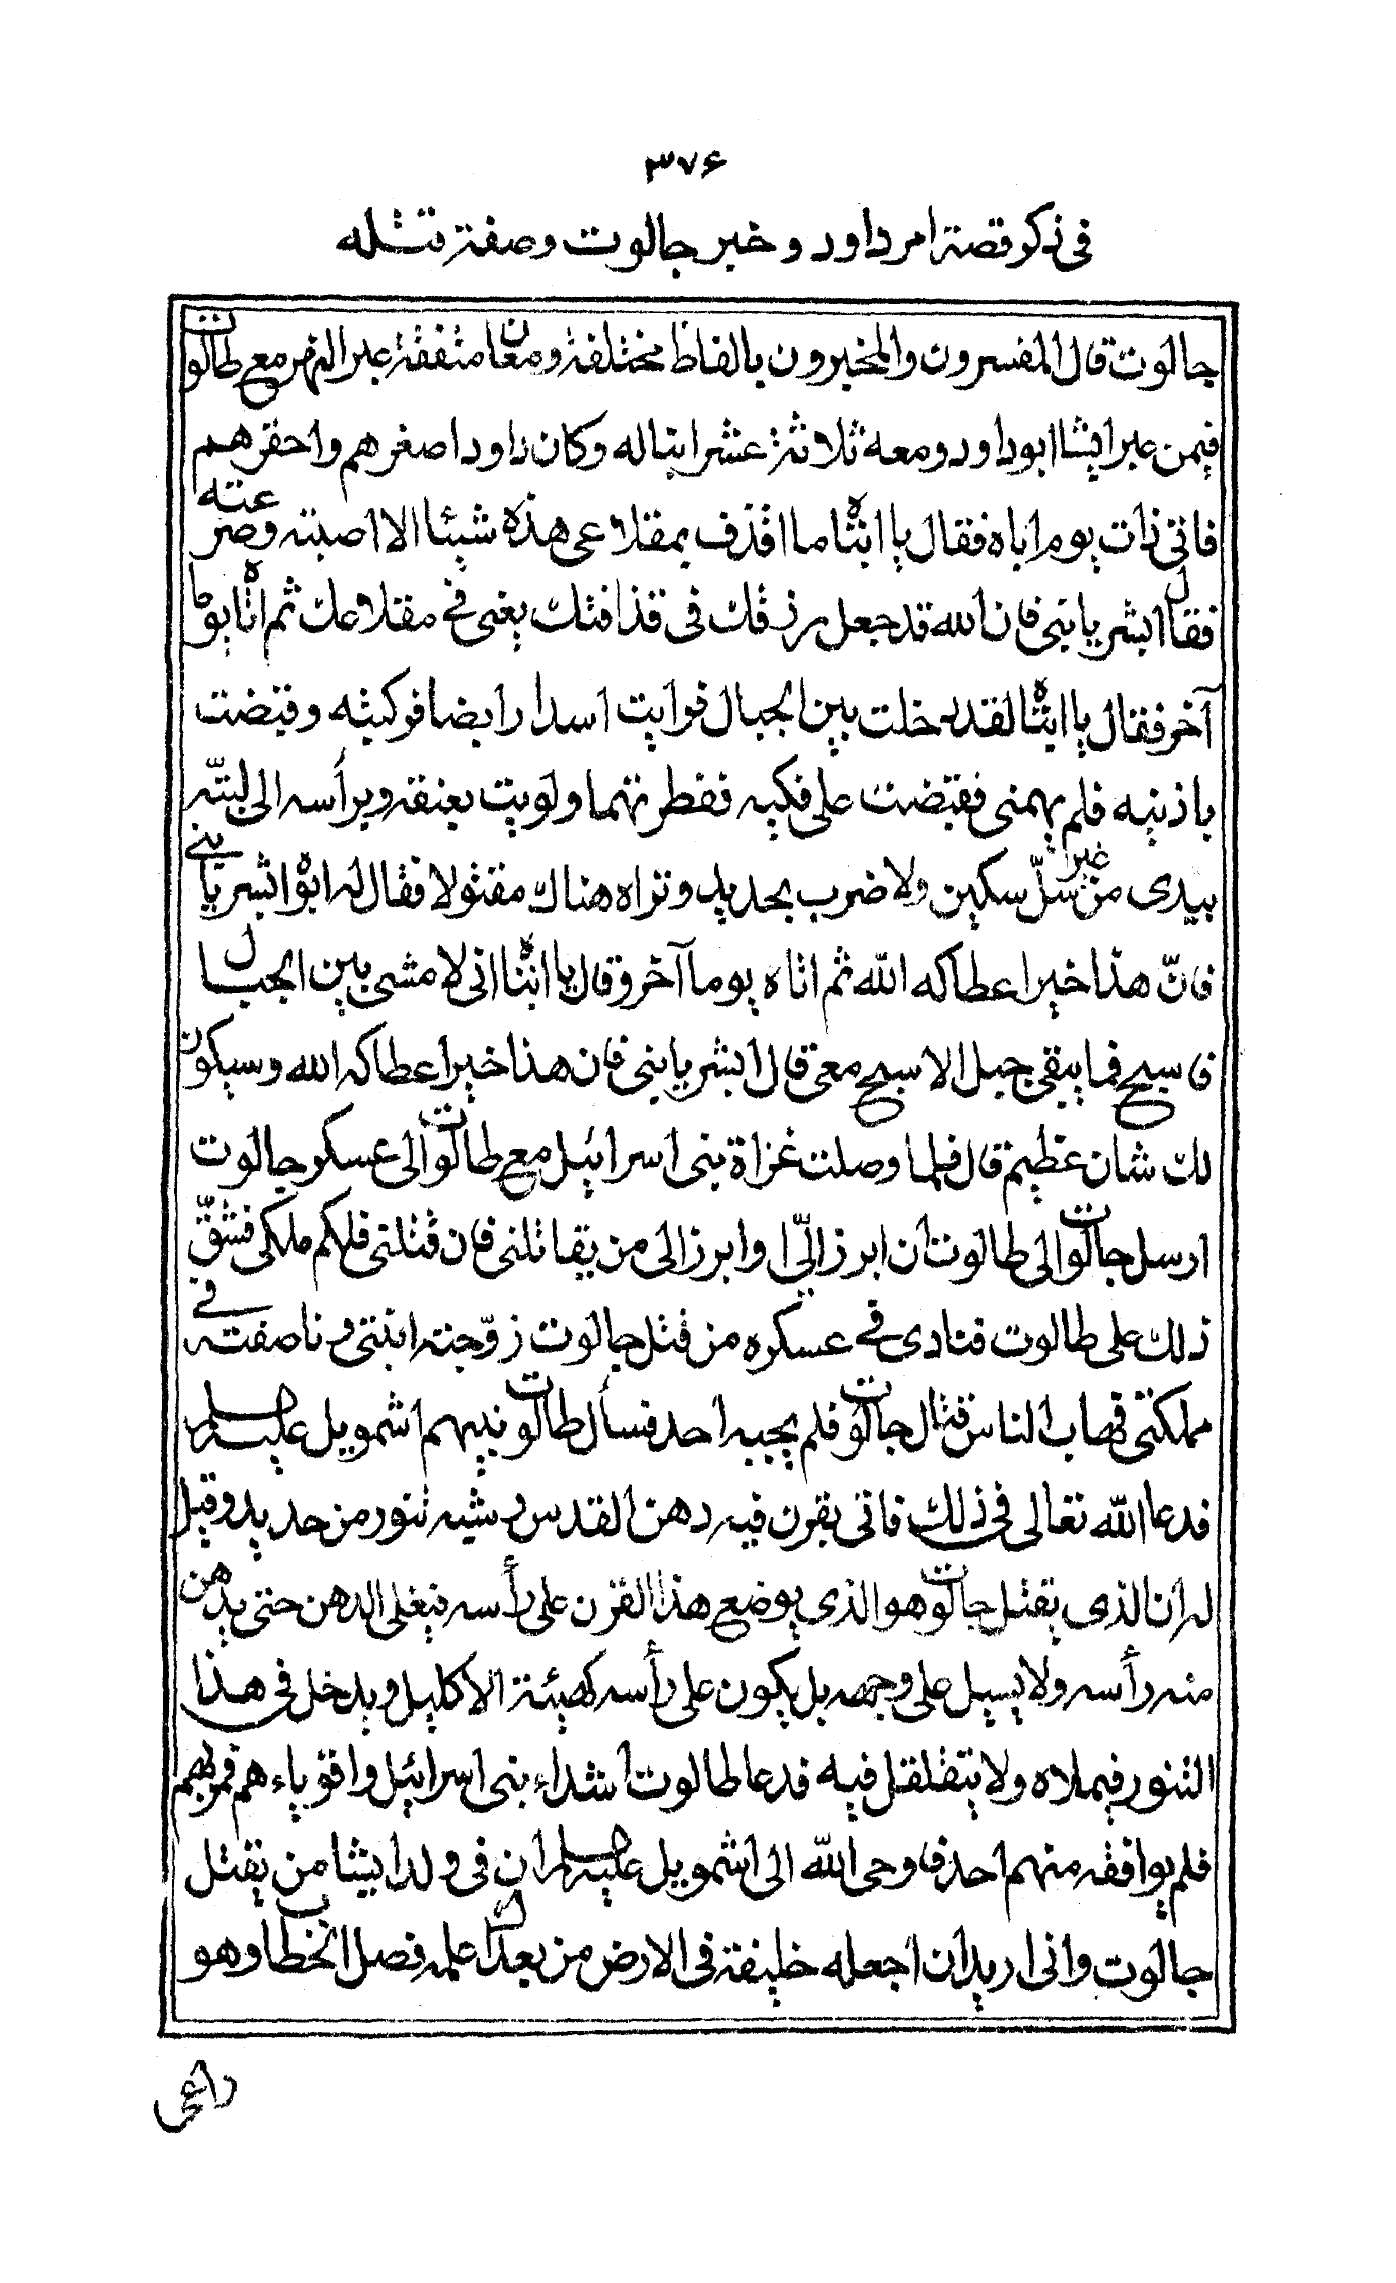 ۳۷۶
فی ذکر قصة امر داود و خبر جالوت و صفة قتله
جالوت قال المفسرون والمخبرون بالفاظ مختلفة ومعان متفقة عبر النهر مع طالوت
فیمن عبر ایشا ابو داود ومعه ثلاثة عشر ابنا له وکان داود اصغرهم واحقرهم
فاتی ذات یوم اباه فقال یا ابتاه ما اقذف بمقلاعی هذه شیئا الا اصبته وصرعته
فقال ابشر یا بنی فان الله قد جعل رزقک فی قذافتک یعنی فی مقلاعک ثم اتاه یوما
آخر فقال یا ابتاه لقد دخلت بین الجبال فرایت اسدا رابضا فرکبته وقبضت
باذنیه فلم یهمنی فقبضت علی فکیه ففطرتهما ولویت بعنقه وبرأسه الی لبته
بیدی من غیر سلّ سکین ولا ضرب بحدید وتراه هناک مقتولا فقال له ابوه ابشر یا بنی
فانّ هذا خیر اعطاکه الله ثم اتاه یوما آخر وقال یا ابتاه انی لامشی بین الجبال
فاسبح فما یبقی جبل الا سبح معی قال ابشر یا بنی فان هذا خیر اعطاکه الله وسیکون
لک شان عظیم قال فلما وصلت غزاة بنی اسرائیل مع طالوت الی عسکر جالوت
ارسل جالوت الی طالوت أن ابرز الیّ او ابرز الی من یقاتلنی فان قتلنی فلکم ملکی فشقّ
ذلک علی طالوت فنادی فی عسکره من قتل جالوت زوّجته ابنتی وناصفته فی
مملکتی فهاب الناس قتال جالوت فلم یجبه احد فسأل طالوت نبیهم اشمویل علیه السلام
فدعا الله تعالی فی ذلک فاتی بقرن فیه دهن القدس وشبه تنور من حدید وقیل
له ان الذی یقتل جالوت هو الذی یوضع هذا القرن علی رأسه فیغلی الدهن حتی یدهن
منه رأسه ولا یسیل علی وجهه بل یکون علی رأسه کهیئة الاکلیل ویدخل فی هذا
التنور فیملاه ولا یتقلقل فیه فدعا طالوت أشداء بنی اسرائیل واقویاءهم فمر بهم
فلم یوافقه منهم احد فاوحی الله الی اشمویل علیه السلام ان فی ولد ایشا من یقتل
جالوت وانی ارید أن اجعله خلیفة فی الارض من بعدک اعلمه فصل الخطاب وهو
داعی